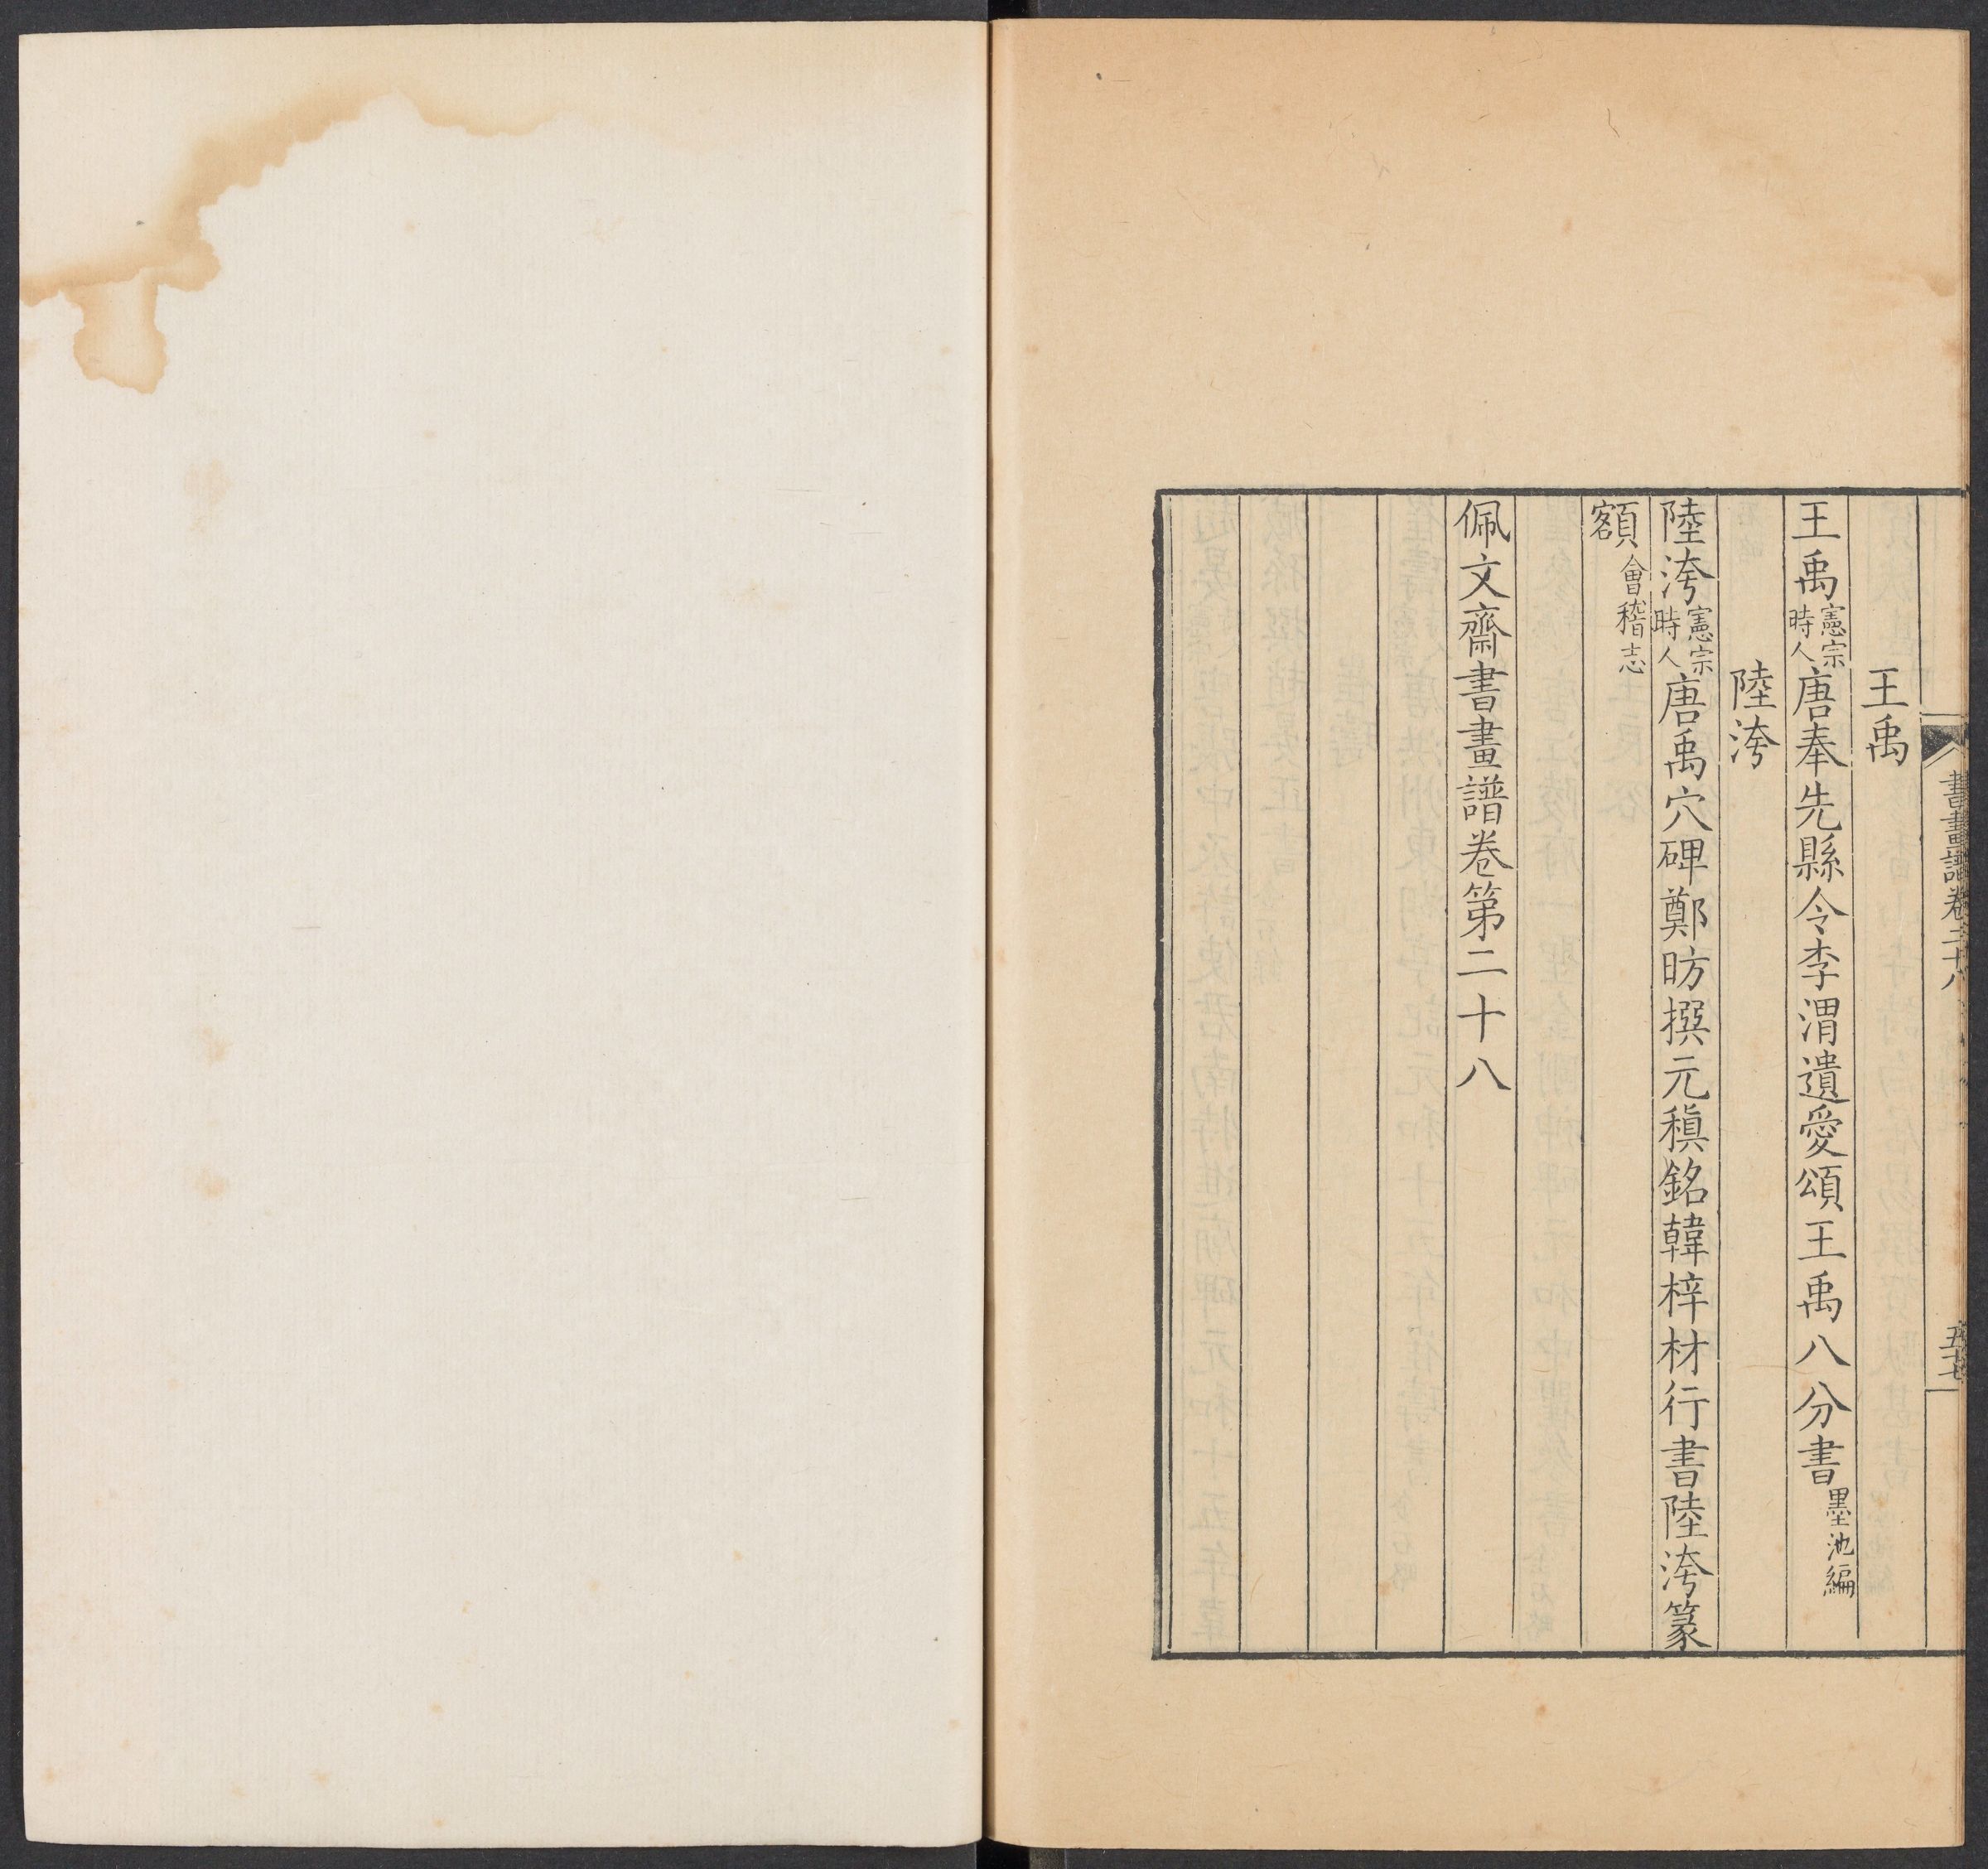 王禹
王禹憲宗時人唐奉先縣令李渭遺愛頌王禹八分書墨池編
陸洿
陸洿憲宗時人唐禹穴碑鄭昉撰元稹銘韓梓材行書陸洿篆
額會稽志
佩文齋書畫譜卷第二十八
書畫譜卷二十八
五七